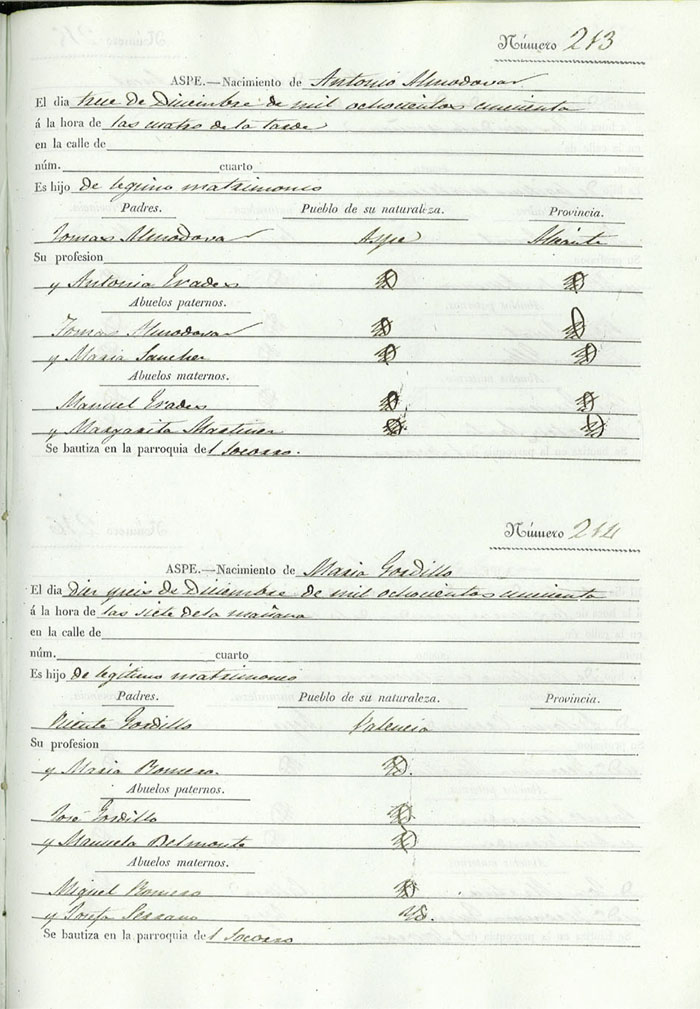 Número 213
ASPE.—Nacimiento de Antonio Almodovar
El dia trece de Diciembre de mil ochocientos cincuenta
á la hora de las cuatro de la tarde
en la calle de
núm. cuarto
Es hijo de legimo matrimonio
Padres. Pueblo de su naturaleza. Provincia.
Tomas Almodovar Aspe Alicante
Su profesion
y Antonia Erades
Abuelos paternos.
Tomas Almodovar
y Maria Sanchez
Abuelos maternos.
Manuel Erades
y Margarita Martinez
Se bautiza en la parroquia del Socorro.
Número 214
ASPE.—Nacimiento de Maria Gordillo
El dia diez y seis de Diciembre de mil ochocientos cincuenta
á la hora de las siete de la mañana
en la calle de
núm. cuarto
Es hijo de legitimo matrimonio
Padres. Pueblo de su naturaleza. Provincia.
Vicente Gordillo Valencia
Su profesion
y Maria Romero.
Abuelos paternos.
José Gordillo
y Manuela Belmonte
Abuelos maternos.
Miguel Romero
y Josefa Serrano
Se bautiza en la parroquia del Socorro